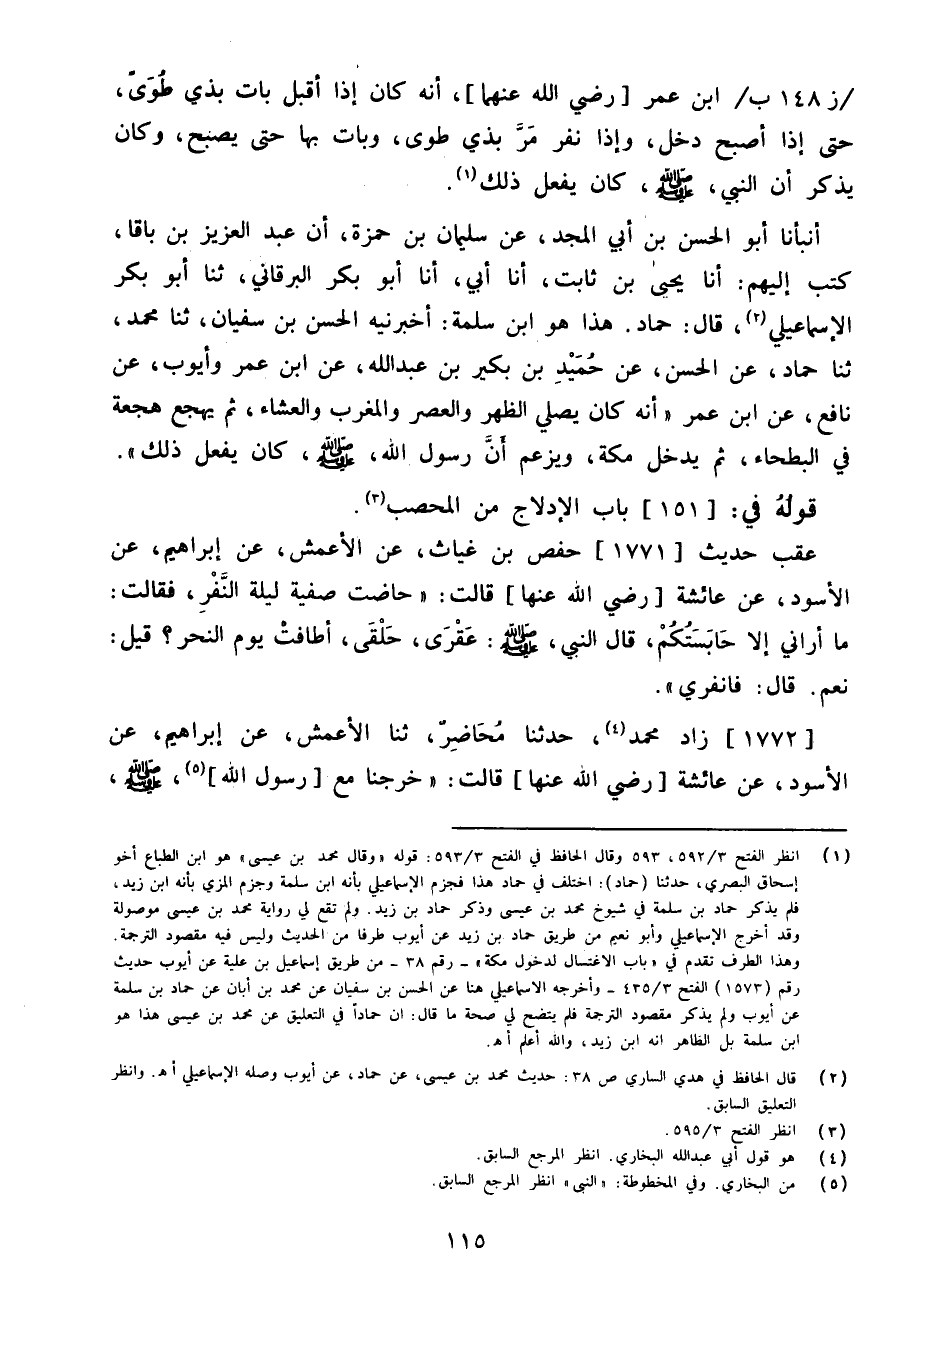 /ز ١٤٨ ب/ ابن عمر [رضي الله عنهما]، أنه كان إذا أقبل بات بذي طُوَىً،
حتى إذا أصبح دخل، وإذا نفر مَرَّ بذي طوى، وبات بها حتى يصبح، وكان
يذكر أن النبي، ﷺ، كان يفعل ذلك(١).
أنبأنا أبو الحسن بن أبي المجد، عن سليمان بن حمزة، أن عبد العزيز بن باقا،
كتب إليهم: أنا يحيىٰ بن ثابت، أنا أبي، أنا أبو بكر البرقاني، ثنا أبو بكر
الإسماعيلي(٢)، قال: حماد. هذا هو ابن سلمة: أخبرنيه الحسن بن سفيان، ثنا محمد،
ثنا حماد، عن الحسن، عن حُمَيْدِ بن بكير بن عبدالله، عن ابن عمر وأيوب، عن
نافع، عن ابن عمر «أنه كان يصلي الظهر والعصر والمغرب والعشاء، ثم يهجع هجعة
في البطحاء، ثم يدخل مكة، ويزعم أَنَّ رسول الله، ﷺ، كان يفعل ذلك».
قولهُ في: [١٥١] باب الإدلاج من المحصب(٣).
عقب حديث [١٧٧١] حفص بن غياث، عن الأعمش، عن إبراهيم، عن
الأسود، عن عائشة [رضي الله عنها] قالت: «حاضت صفية ليلة النَّفْرِ، فقالت:
ما أراني إلا حَابَسَتُكُمْ، قال النبي، ﷺ: عَقْرَى، حَلْقَى، أطافتْ يوم النحر؟ قيل:
نعم. قال: فانفري».
[١٧٧٢] زاد محمد(٤)، حدثنا مُحَاضِرٌ، ثنا الأعمش، عن إبراهيم، عن
الأسود، عن عائشة [رضي الله عنها] قالت: «خرجنا مع [رسول الله](٥)، ﷺ،
(١) انظر الفتح ٥٩٢/٣، ٥٩٣ وقال الحافظ في الفتح ٥٩٣/٣: قوله «وقال محمد بن عيسى» هو ابن الطباع أخو
إسحاق البصري، حدثنا (حماد): اختلف في حماد هذا فجزم الإسماعيلي بأنه ابن سلمة وجزم المزي بأنه ابن زيد،
فلم يذكر حماد بن سلمة في شيوخ محمد بن عيسى وذكر حماد بن زيد. ولم تقع لي رواية محمد بن عيسى موصولة
وقد أخرج الإسماعيلي وأبو نعيم من طريق حماد بن زيد عن أيوب طرفا من الحديث وليس فيه مقصود الترجمة.
وهذا الطرف تقدم في «باب الاغتسال لدخول مكة» - رقم ٣٨ - من طريق إسماعيل بن علية عن أيوب حديث
رقم (١٥٧٣) الفتح ٤٣٥/٣ - وأخرجه الاسماعيلي هنا عن الحسن بن سفيان عن محمد بن أبان عن حماد بن سلمة
عن أيوب ولم يذكر مقصود الترجمة فلم يتضح لي صحة ما قال: ان حماداً في التعليق عن محمد بن عيسى هذا هو
ابن سلمة بل الظاهر انه ابن زيد، والله أعلم أ هـ.
(٢) قال الحافظ في هدي الساري ص ٣٨: حديث محمد بن عيسى، عن حماد، عن أيوب وصله الإسماعيلي أ هـ. وانظر
التعليق السابق.
(٣) انظر الفتح ٥٩٥/٣.
(٤) هو قول أبي عبدالله البخاري. انظر المرجع السابق.
(٥) من البخاري. وفي المخطوطة: «النبي» انظر المرجع السابق.
١١٥